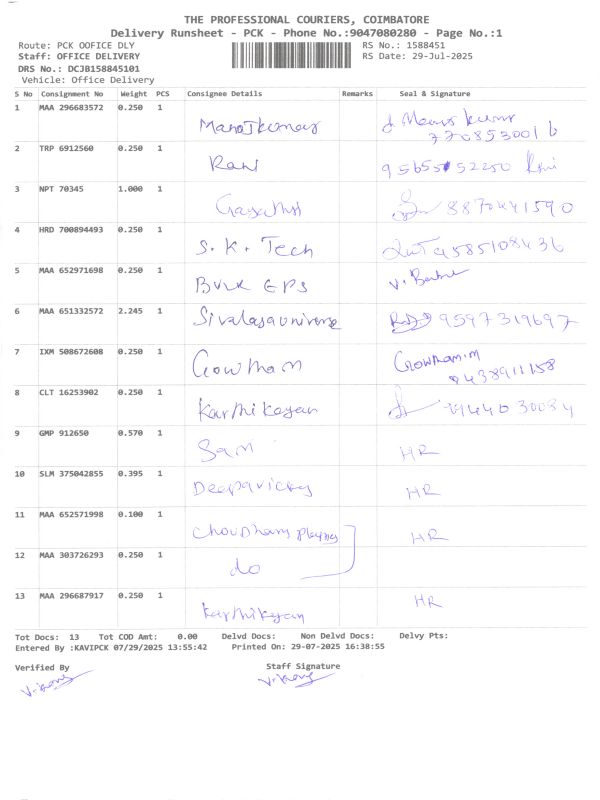 THE PROFESSIONAL COURIERS, COIMBATORE
Delivery Runsheet - PCK - Phone No.:9047080280 - Page No.:1
Route: PCK OOFICE DLY RS No.: 1588451
Staff: OFFICE DELIVERY RS Date: 29-Jul-2025
DRS No.: DCJB158845101
Vehicle: Office Delivery
S No Consignment No Weight PCS Consignee Details Remarks Seal & Signature
1 MAA 296683572 0.250 1 Manojkumar
2 TRP 6912560 0.250 1 Rani
3 NPT 70345 1.000 1 8870441590
4 HRD 700894493 0.250 1 S. K. Tech 9585108436
5 MAA 652971698 0.250 1
6 MAA 651332572 2.245 1 9597319697
7 IXM 508672608 0.250 1 Gowtham Gowtham.M
8 CLT 16253902 0.250 1 Karthikeyan
9 GMP 912650 0.570 1 Sam HR
10 SLM 375042855 0.395 1 HR
11 MAA 652571998 0.100 1 HR
12 MAA 303726293 0.250 1 do
13 MAA 296687917 0.250 1 Karthikeyan HR
Tot Docs: 13 Tot COD Amt: 0.00 Delvd Docs: Non Delvd Docs: Delvy Pts:
Entered By :KAVIPCK 07/29/2025 13:55:42 Printed On: 29-07-2025 16:38:55
Verified By Staff Signature